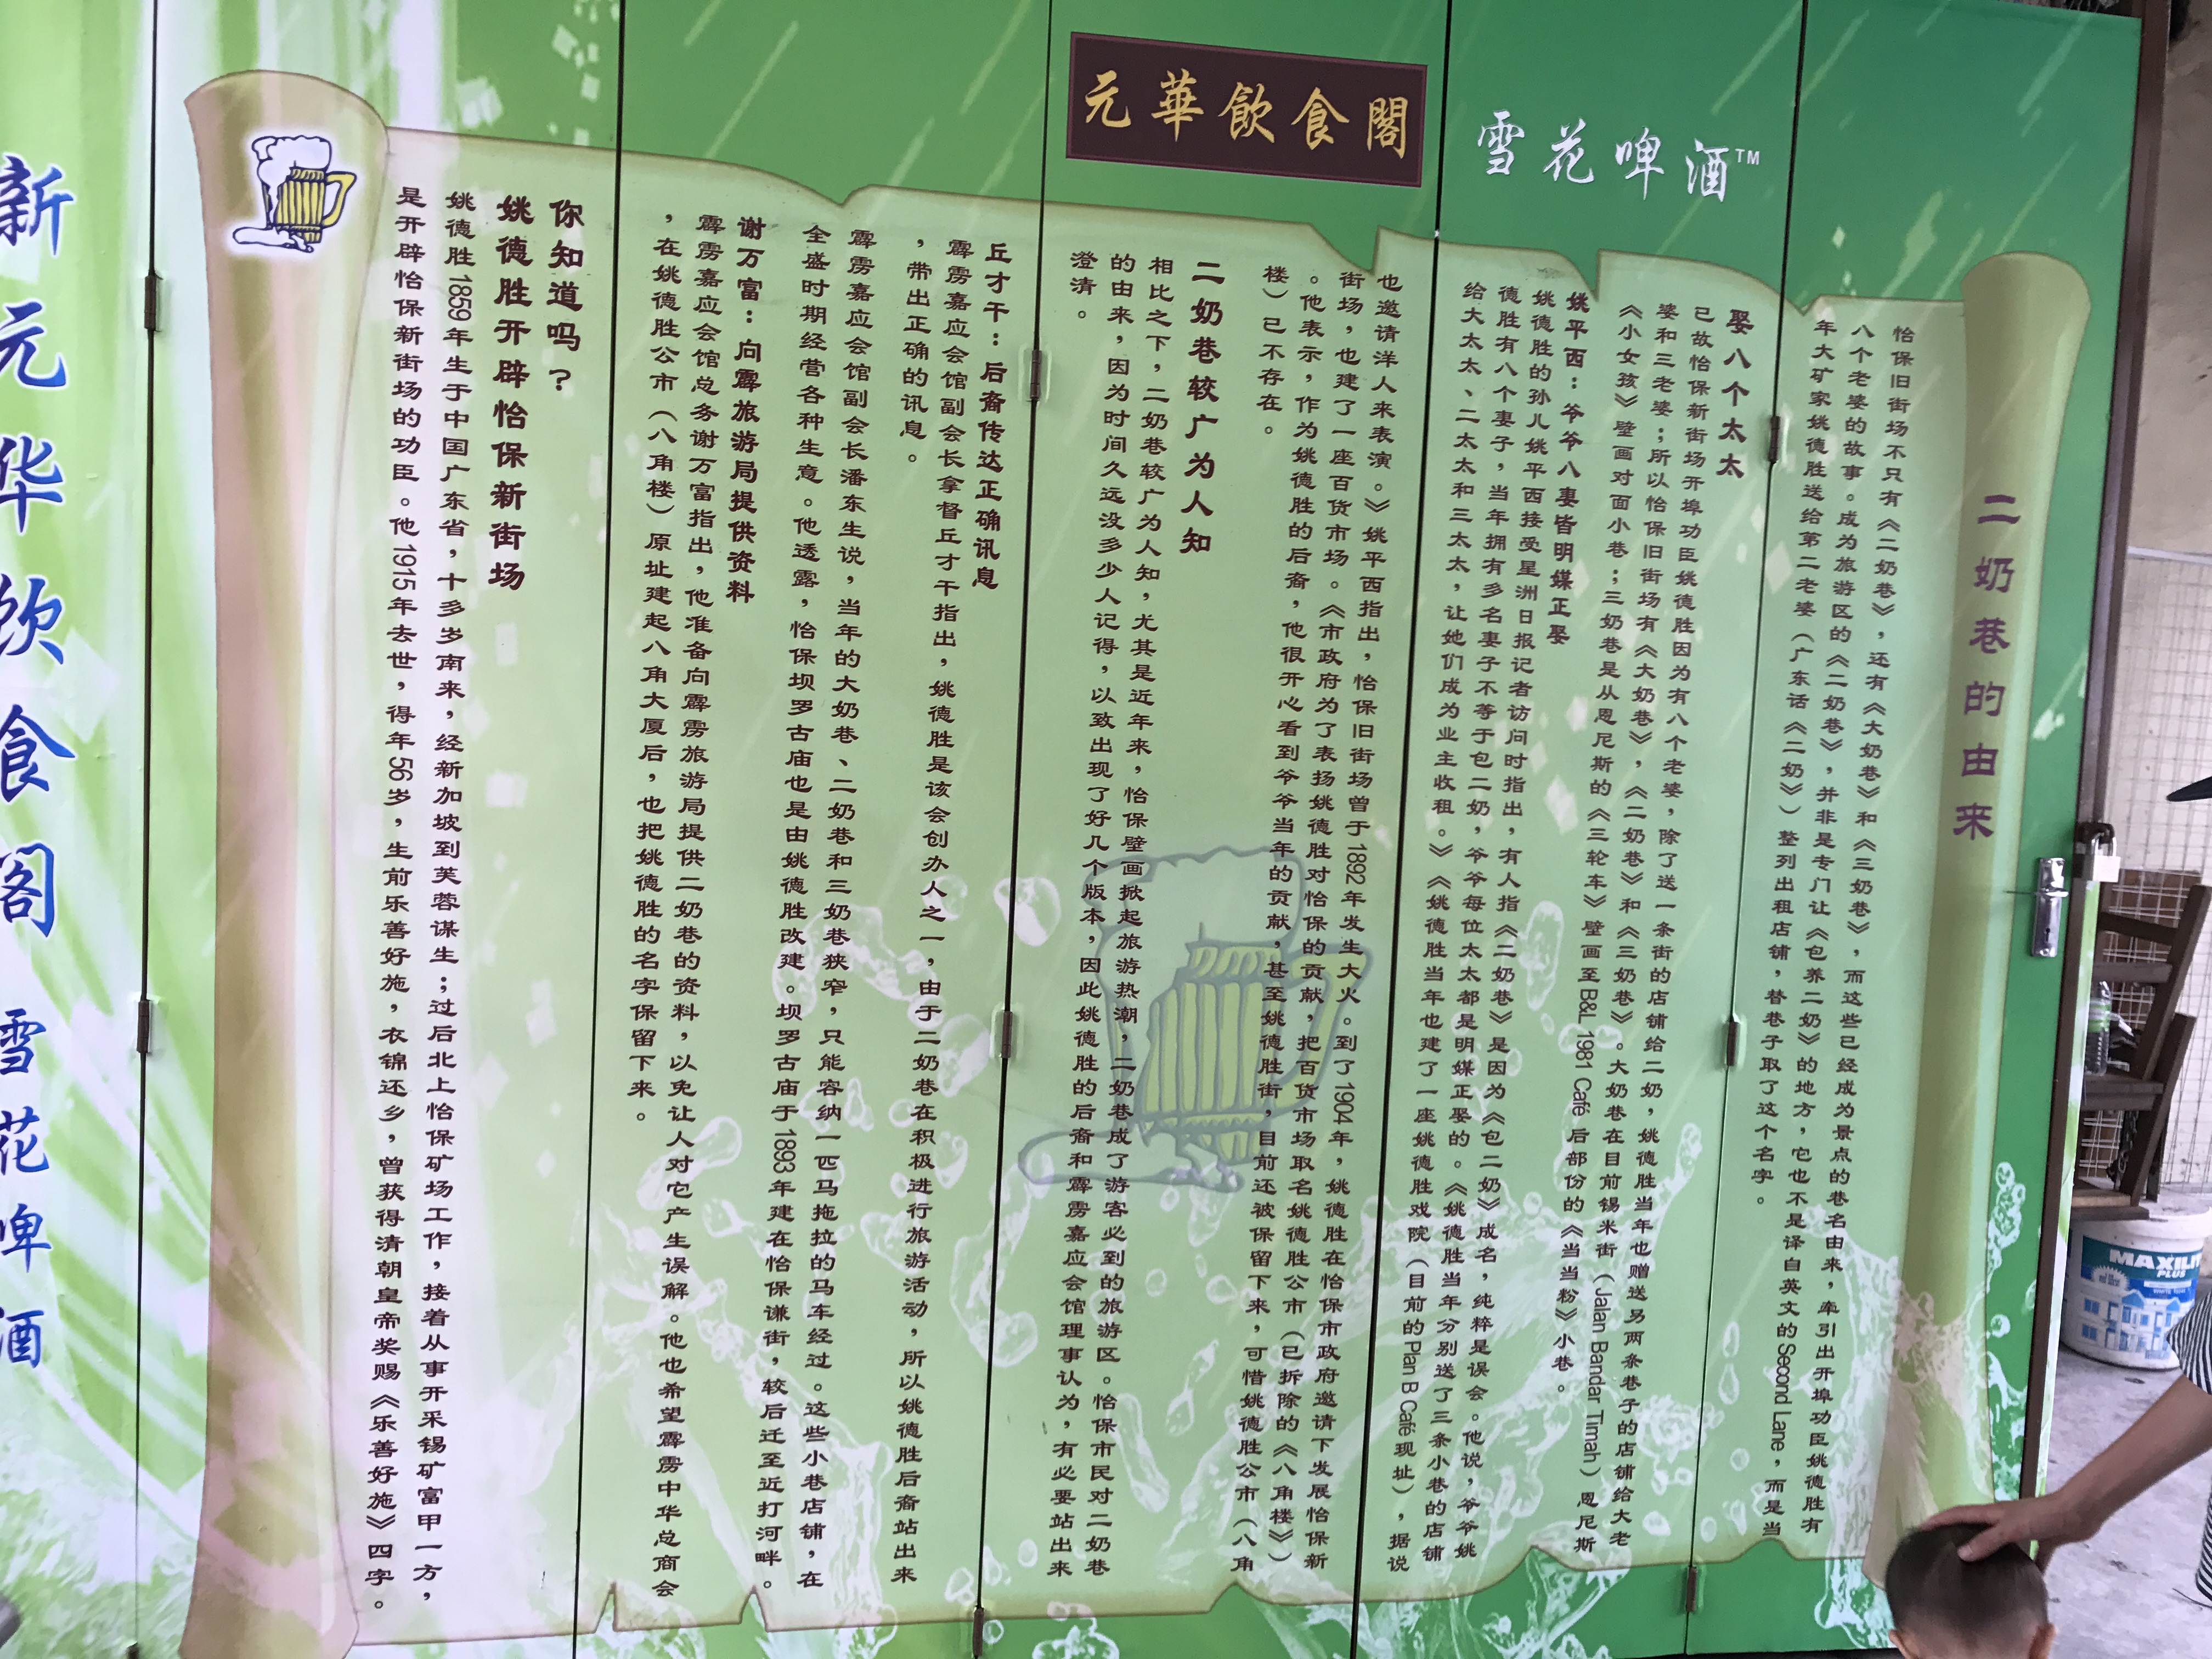 元華飲食閣
雪花啤酒™
二奶巷的由来
怡保旧街场不只有《二奶巷》，还有《大奶巷》和《三奶巷》，而这些已经成为景点的巷名由来，牵引出开埠功臣姚德胜有
八个老婆的故事。成为旅游区的《二奶巷》，并非是专门让《包养二奶》的地方，它也不是译自英文的Second Lane，而是当
年大矿家姚德胜送给第二老婆（广东话《二奶》）整列出租店铺，替巷子取了这个名字。
娶八个太太
已故怡保新街场开埠功臣姚德胜因为有八个老婆，除了送一条街的店铺给二奶，姚德胜当年也赠送另两条巷子的店铺给大老
婆和三老婆；所以怡保旧街场有《大奶巷》，《二奶巷》和《三奶巷》。大奶巷在目前锡米街（Jalan Bandar Timah）恩尼斯
《小女孩》壁画对面小巷；三奶巷是从恩尼斯的《三轮车》壁画至B&L 1981 Café 后部份的《当当粉》小巷。
姚平西：爷爷八妻皆明媒正娶
姚德胜的孙儿姚平西接受星洲日报记者访问时指出，有人指《二奶巷》是因为《包二奶》成名，纯粹是误会。他说，爷爷姚
德胜有八个妻子，当年拥有多名妻子不等于包二奶，爷爷每位太太都是明媒正娶的。《姚德胜当年分别送了三条小巷的店铺
给大太太、二太太和三太太，让她们成为业主收租。》《姚德胜当年也建了一座姚德胜戏院（目前的Plan B Café现址），据说
也邀请洋人来表演。》姚平西指出，怡保旧街场曾于1892年发生大火。到了1904年，姚德胜在怡保市政府邀请下发展怡保新
街场，也建了一座百货市场。《市政府为了表扬姚德胜对怡保的贡献，把百货市场取名姚德胜公市（已拆除的《八角楼》）
。他表示，作为姚德胜的后裔，他很开心看到爷爷当年的贡献，甚至姚德胜街，目前还被保留下来，可惜姚德胜公市（八角
楼）已不存在。
二奶巷较广为人知
相比之下，二奶巷较广为人知，尤其是近年来，怡保壁画掀起旅游热潮，二奶巷成了游客必到的旅游区。怡保市民对二奶巷
的由来，因为时间久远没多少人记得，以致出现了好几个版本，因此姚德胜的后裔和霹雳嘉应会馆理事认为，有必要站出来
澄清。
丘才干：后裔传达正确讯息
霹雳嘉应会馆副会长拿督丘才干指出，姚德胜是该会创办人之一，由于二奶巷在积极进行旅游活动，所以姚德胜后裔站出来
，带出正确的讯息。
霹雳嘉应会馆副会长潘东生说，当年的大奶巷、二奶巷和三奶巷狭窄，只能容纳一匹马拖拉的马车经过。这些小巷店铺，在
全盛时期经营各种生意。他透露，怡保坝罗古庙也是由姚德胜改建。坝罗古庙于1893年建在怡保谦街，较后迁至近打河畔。
谢万富：向霹旅游局提供资料
霹雳嘉应会馆总务谢万富指出，他准备向霹雳旅游局提供二奶巷的资料，以免让人对它产生误解。他也希望霹雳中华总商会
，在姚德胜公市（八角楼）原址建起八角大厦后，也把姚德胜的名字保留下来。
你知道吗？
姚德胜开辟怡保新街场
姚德胜1859年生于中国广东省，十多岁南来，经新加坡到芙蓉谋生；过后北上怡保矿场工作，接着从事开采锡矿富甲一方，
是开辟怡保新街场的功臣。他1915年去世，得年56岁，生前乐善好施，衣锦还乡，曾获得清朝皇帝奖赐《乐善好施》四字。
新元华饮食阁 雪花啤酒
MAXILI
PLUS